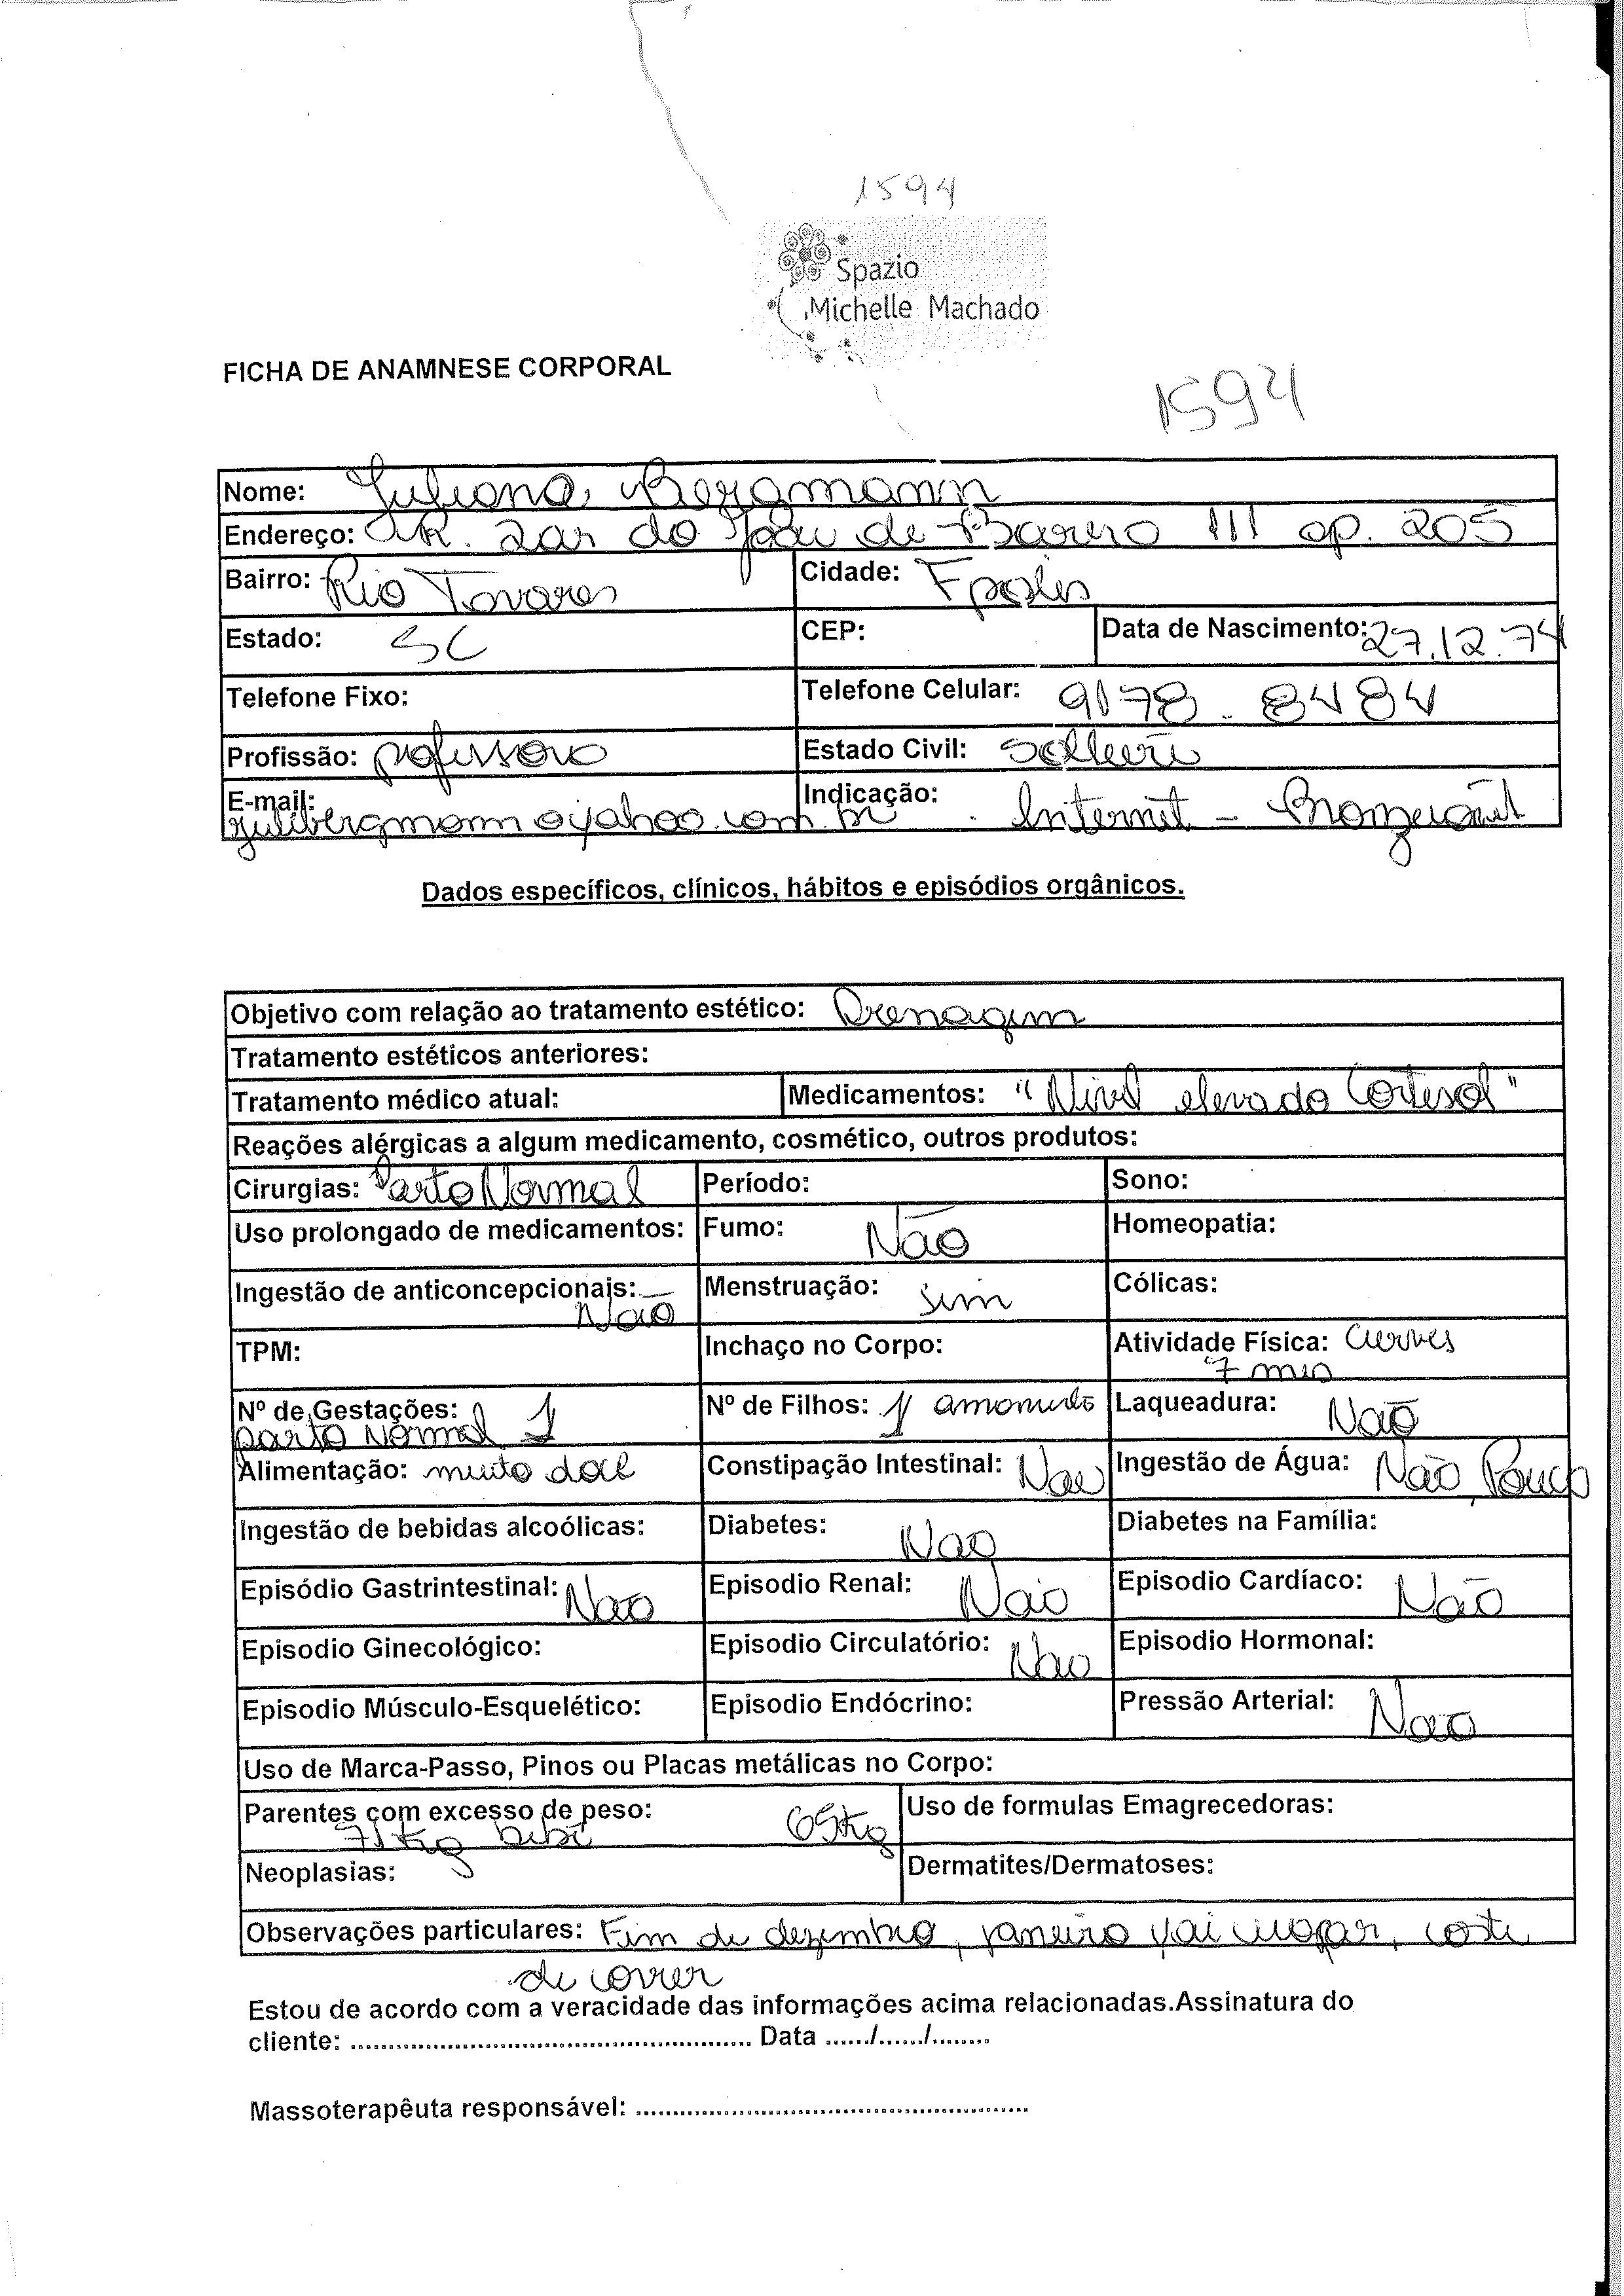 1594
Spazio
Michelle Machado
FICHA DE ANAMNESE CORPORAL
1594
Nome: Juliana Bergmann
Endereço: R. do João de Barro 111 ap. 205
Bairro: Rio Tavares Cidade: Fpolis
Estado: SC CEP: Data de Nascimento: 27.12.74
Telefone Fixo: Telefone Celular: 9178-8484
Profissão: professora Estado Civil: solteira
E-mail: Indicação: Internet -
julibergmann@yahoo.com.br
Dados específicos, clínicos, hábitos e episódios orgânicos.
Objetivo com relação ao tratamento estético: Drenagem
Tratamento estéticos anteriores:
Tratamento médico atual: Medicamentos: "Nível elevado Cortisol"
Reações alérgicas a algum medicamento, cosmético, outros produtos:
Cirurgias: Parto Normal Período: Sono:
Uso prolongado de medicamentos: Fumo: Não Homeopatia:
Ingestão de anticoncepcionais: Menstruação: sim Cólicas:
Não
TPM: Inchaço no Corpo: Atividade Física: Curves
7 mes
Nº de Gestações: 1 Nº de Filhos: 1 Laqueadura: Não
parto Normal
Alimentação: muito doce Constipação Intestinal: Não Ingestão de Água: Não, Pouco
Ingestão de bebidas alcoólicas: Diabetes: Não Diabetes na Família:
Episódio Gastrintestinal: Não Episodio Renal: Não Episodio Cardíaco: Não
Episodio Ginecológico: Episodio Circulatório: Não Episodio Hormonal:
Episodio Músculo-Esquelético: Episodio Endócrino: Pressão Arterial: Não
Uso de Marca-Passo, Pinos ou Placas metálicas no Corpo:
Parentes com excesso de peso: 65kg Uso de formulas Emagrecedoras:
71kg bebê
Neoplasias: Dermatites/Dermatoses:
Observações particulares: Fim de dezembro, janeiro vai viajar,
de correr
Estou de acordo com a veracidade das informações acima relacionadas.Assinatura do
cliente: .................................................... Data ....../....../........
Massoterapêuta responsável: ....................................................